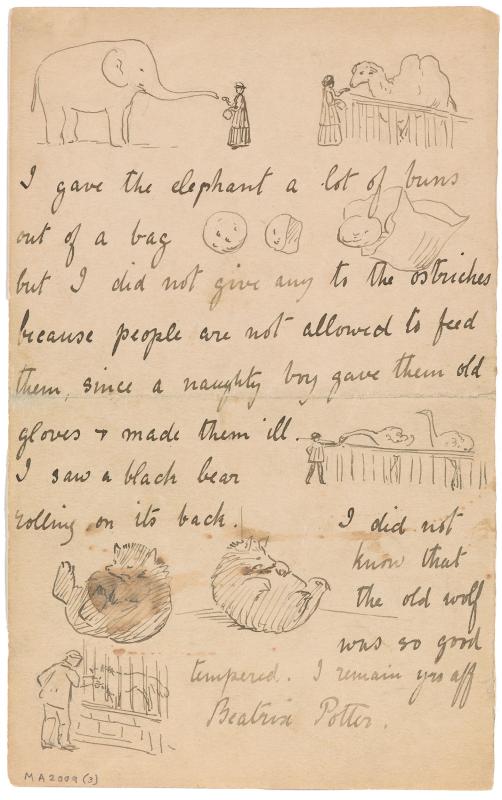 I gave the elephant a lot of buns
out of a bag
but I did not give any to the ostriches
because people are not allowed to feed
them, since a naughty boy gave them old
gloves & made them ill.
I saw a black bear
rolling on its back.
I did not
know that
the old wolf
was so good
tempered. I remain yrs aff
Beatrix Potter.
MA2009(3)